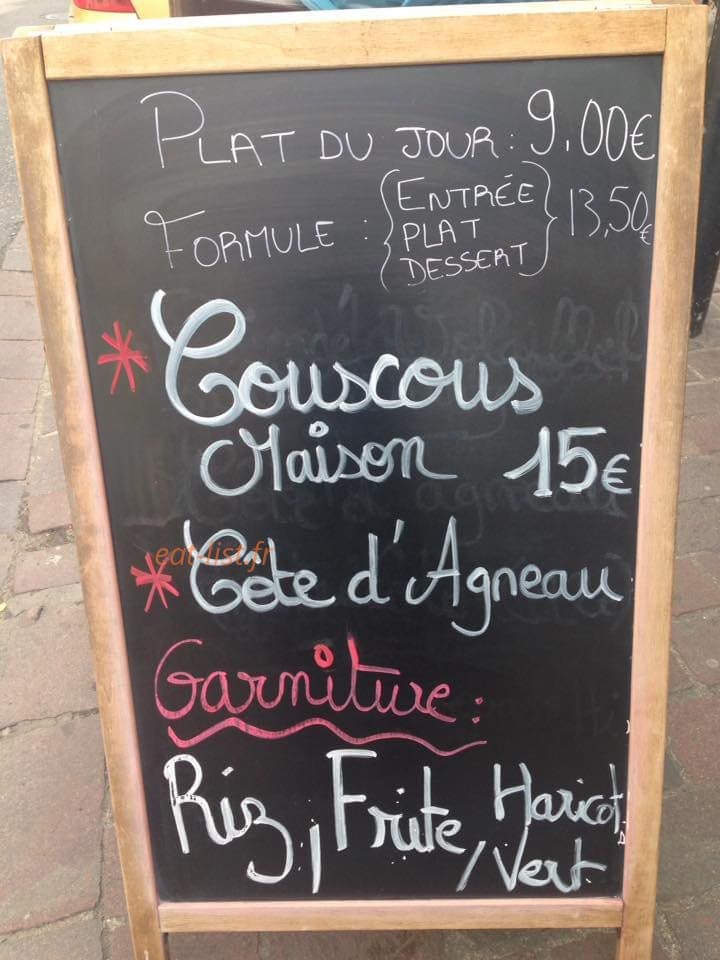 PLAT DU JOUR : 9.00€
FORMULE : { ENTRÉE
PLAT
DESSERT } 13,50€
* Couscous
Maison 15€
eat-list.fr
* Cote d'Agneau
Garniture :
Riz, Frite Haricot
/ Vert